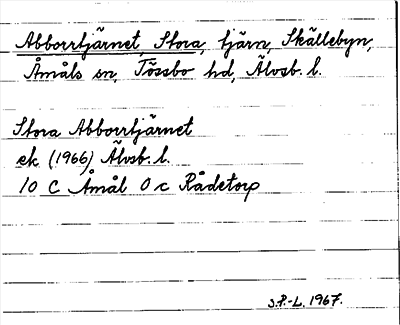 Abborrtjärnet, Stora, tjärn, Skällebyn,
Åmåls sn, Tössbo hd, Älvsb. l.
Stora Abborrtjärnet
ek. (1966) Älvsb. l.
10 C Åmål 0 c Rådetorp
S.P.-L. 1967.